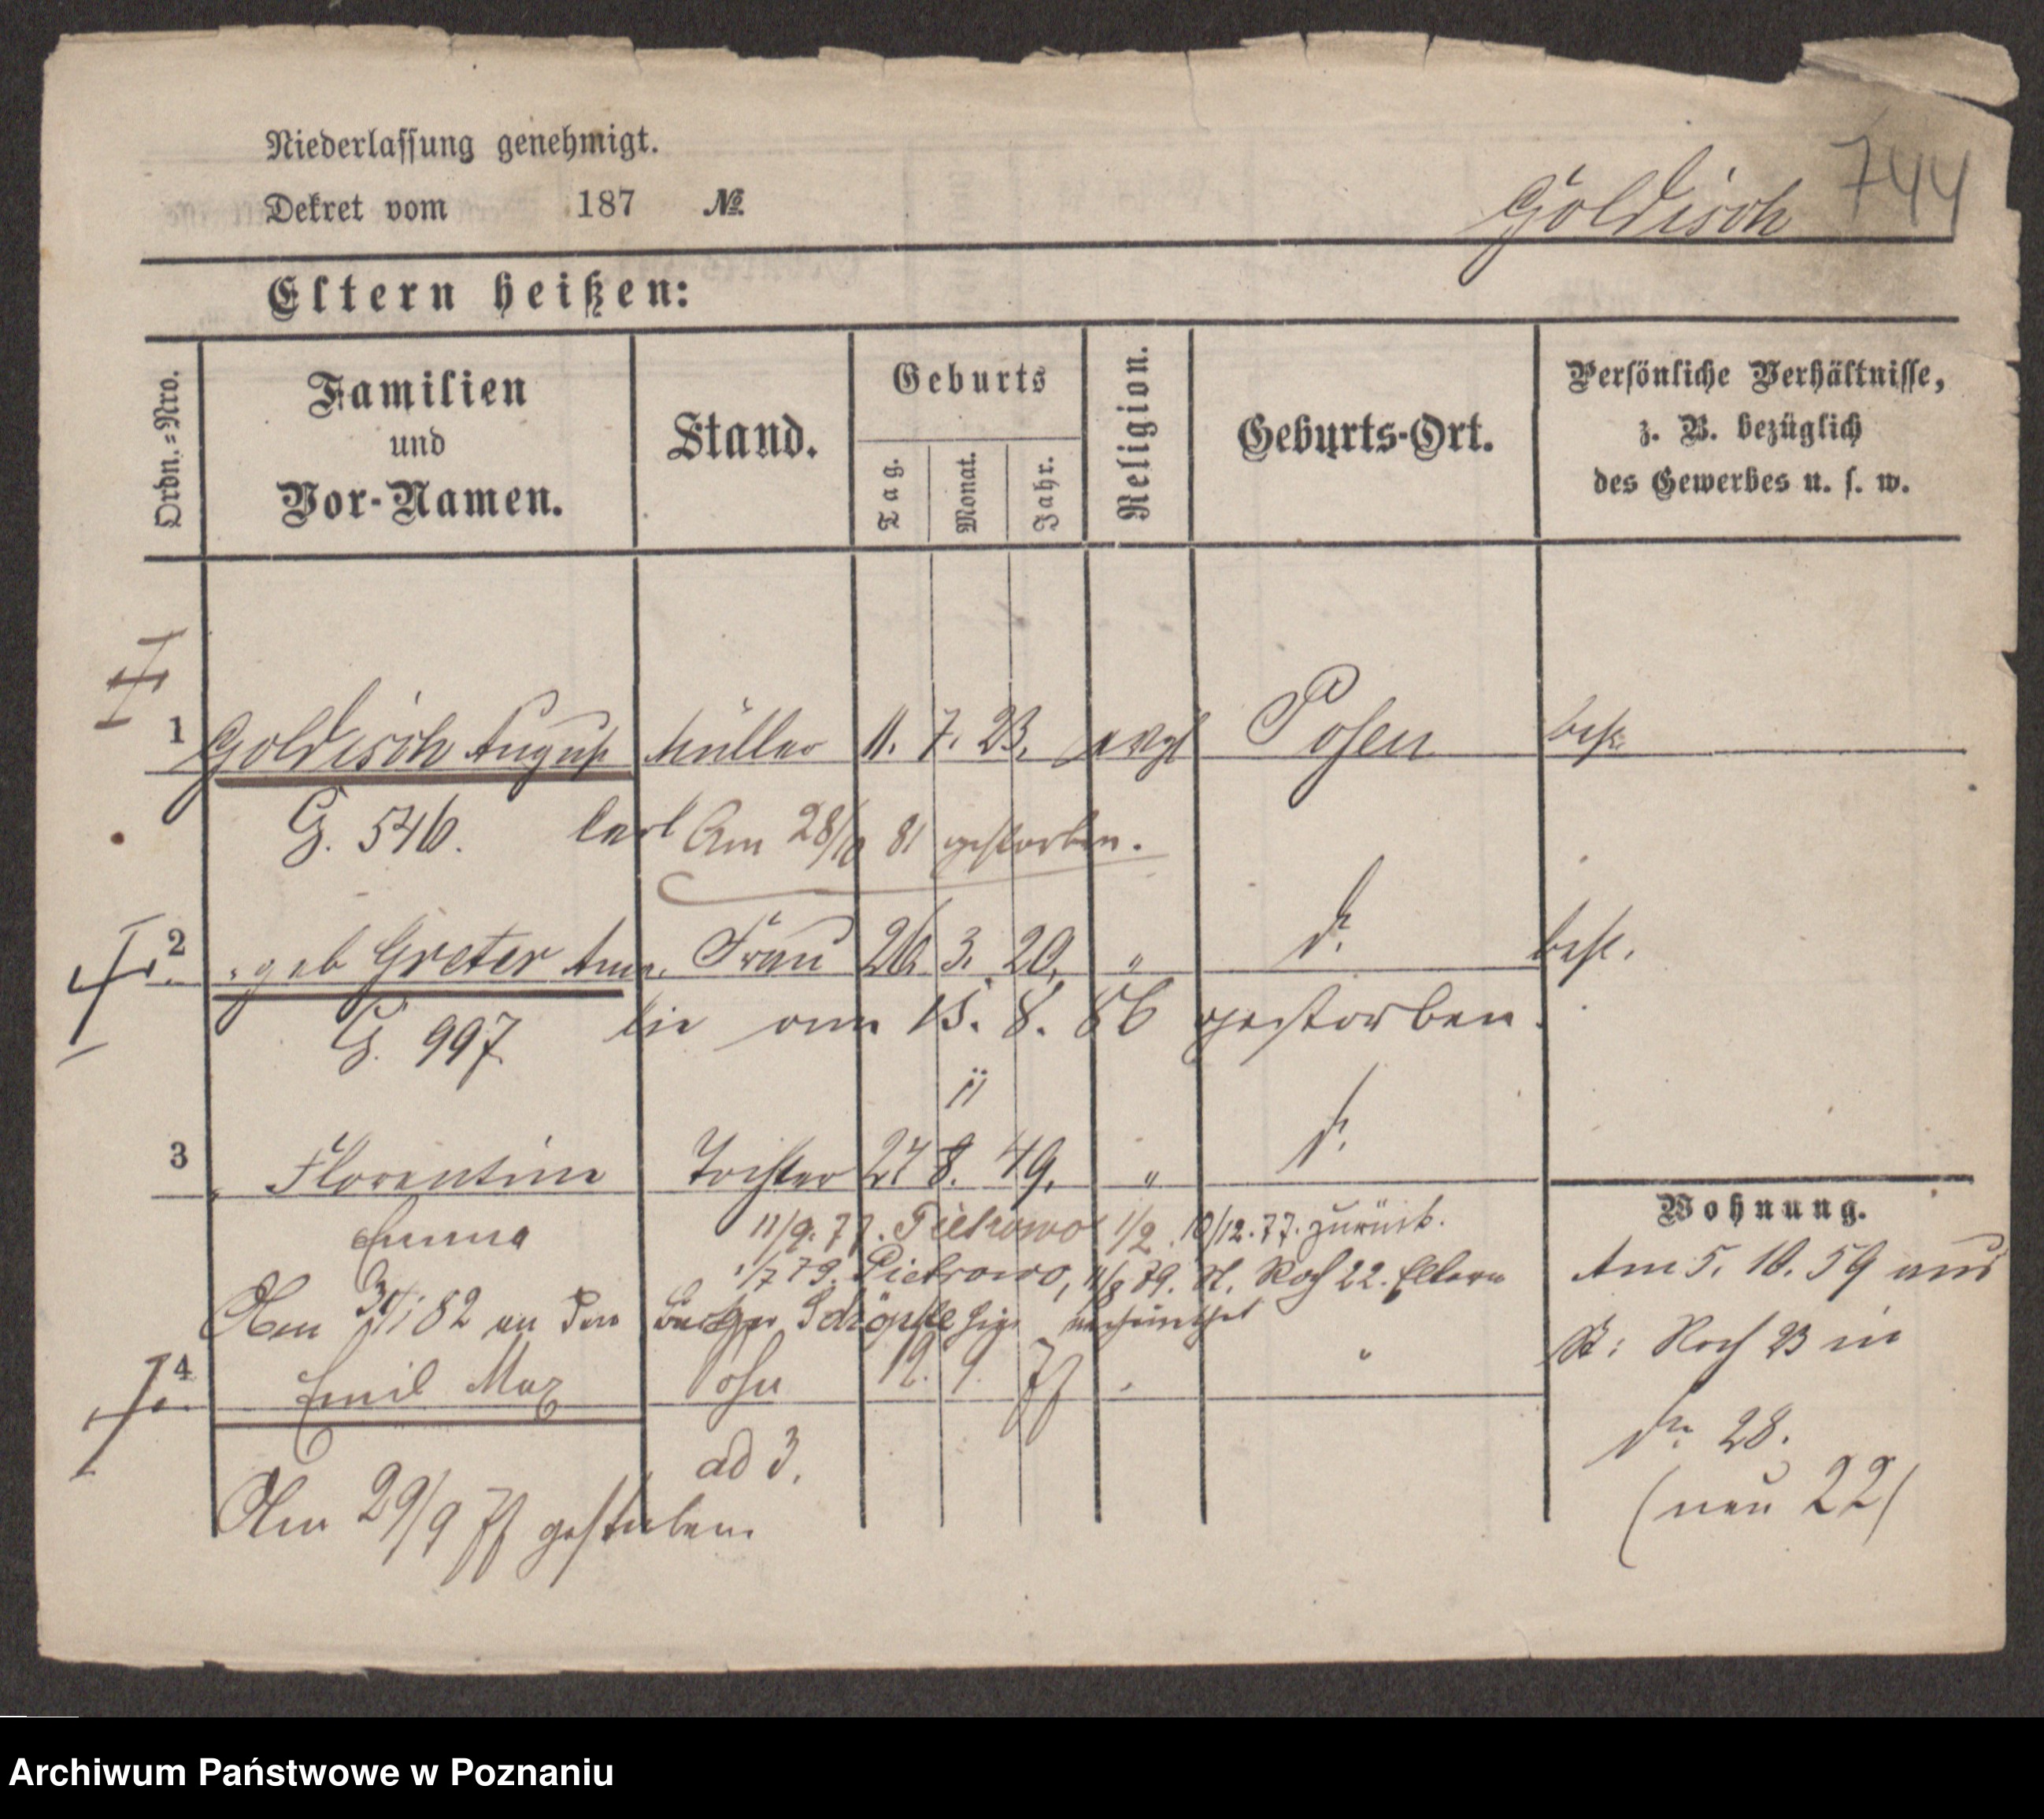 744
Niederlassung genehmigt.
Dekret vom 187 №
Goldisch
Eltern heißen:
Ordn.=Nro.
Familien
und
Vor-Namen.
Stand.
Geburts
Tag.
Monat.
Jahr.
Religion.
Geburts-Ort.
Persönliche Verhältnisse,
z. B. bezüglich
des Gewerbes u. s. w.
1 Goldisch August Müller 11. 7. 23. evgl Posen
G. 546. Carl Am 28/10 81 gestorben.
2 " geb Greter Ama= Frau 26. 3. 20. " do
G. 997 lie am 15. 8. 86 gestorben.
3 " Florentine Tochter 27 8. 49. " do
Emma 11/9. 77. Pietrowo 1/2. 10/12. 77. zurück.
1/7 79. Pietrowo, 11/8 79. St. Roch 22. Eltern
Am 82 an den hier
4 Emil Max Sohn 12. 9. 77 " "
ad 3.
Am 29/9 77 gestorben
Wohnung.
Am 5. 10. 59 aus
St: Roch 23 in
do 28.
(neu 22)